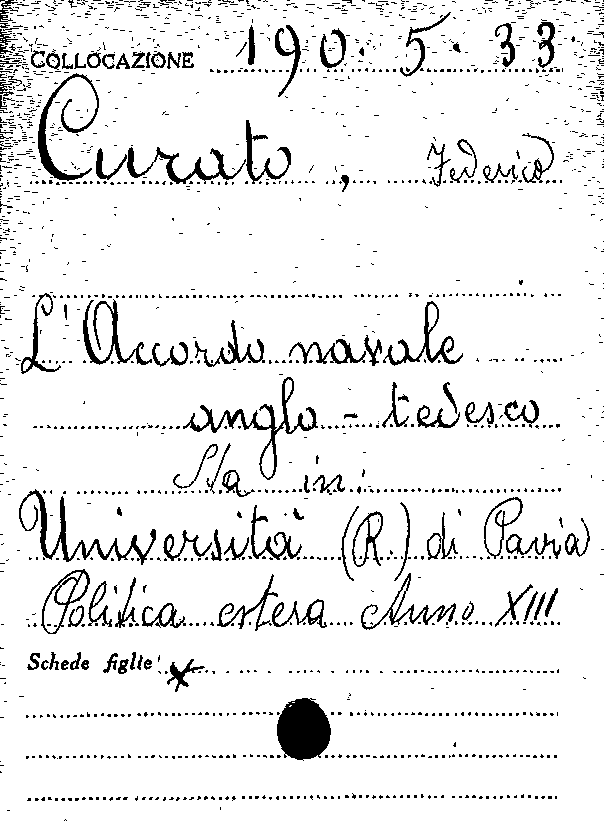 COLLOCAZIONE 190. 5. 33.
Curato, Federico
L'Accordo navale
anglo - tedesco
Sta in:
Università (R.) di Pavia
Politica estera Anno XIII
Schede figlie: x